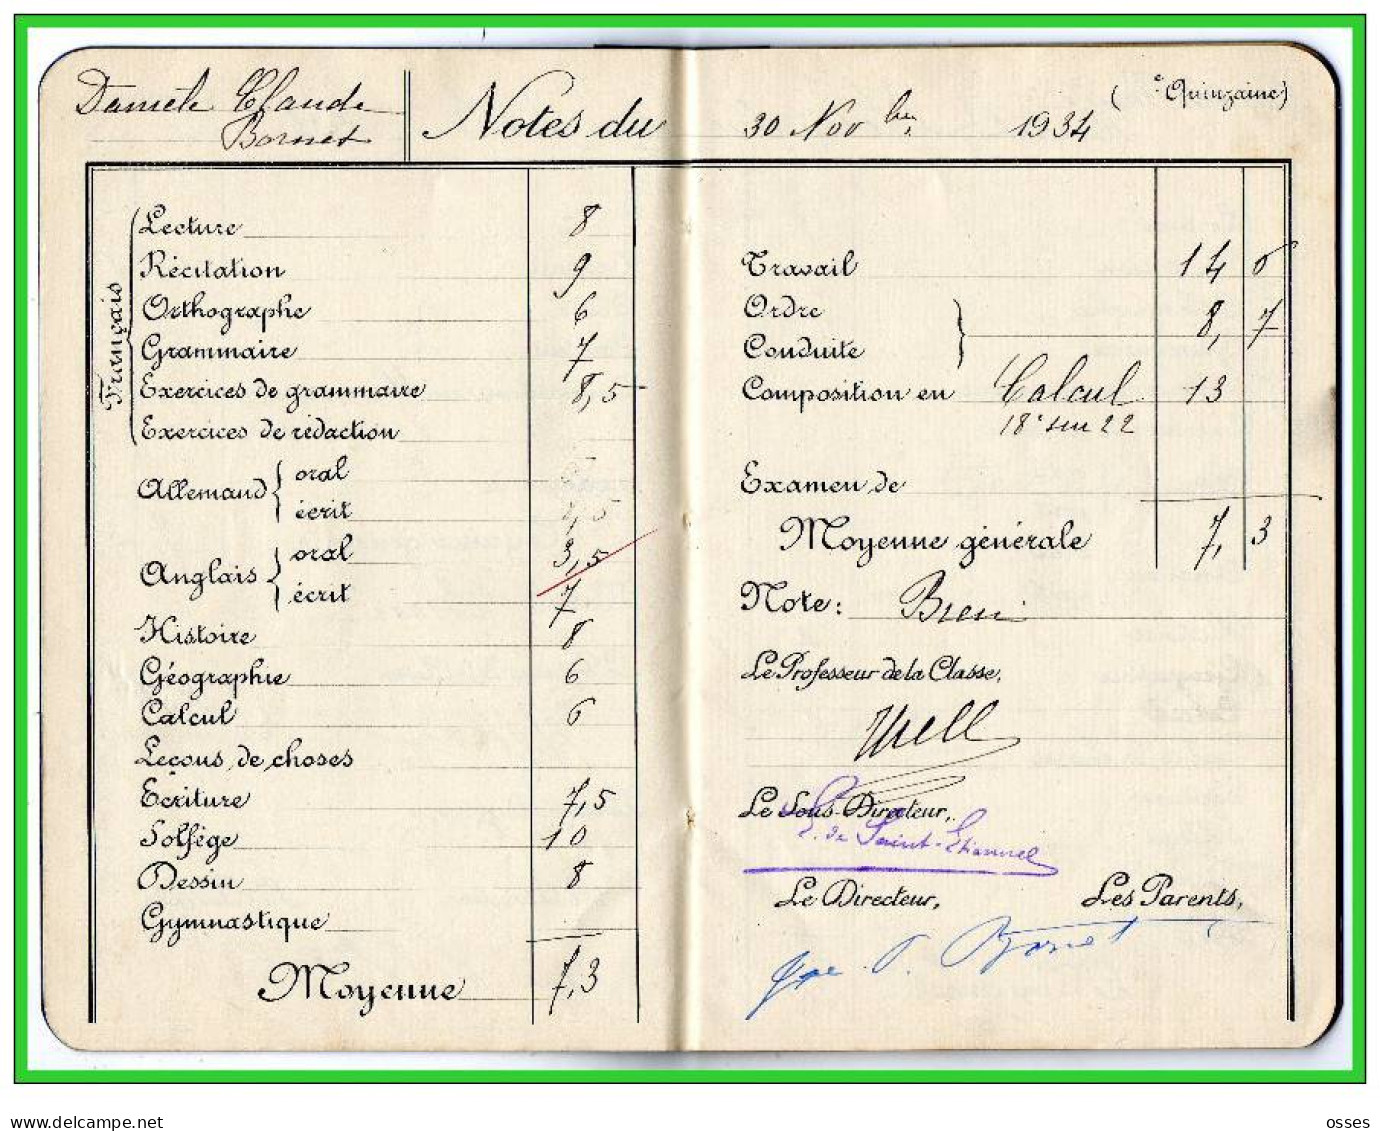 Danièle Claude
Bornet
Notes du 30 Novbre 1934 (e Quinzaine)
Français
Lecture 8
Récitation 9
Orthographe 6
Grammaire 7
Exercices de grammaire 8,5
Exercices de rédaction
Allemand { oral
écrit
Anglais { oral 3,5
écrit 7
Histoire 8
Géographie 6
Calcul 6
Leçons de choses
Ecriture 7,5
Solfège 10
Dessin 8
Gymnastique
Moyenne 7,3
Travail 14 6
Ordre
Conduite } 8, 7
Composition en Calcul 13
18e sur 22
Examen de
Moyenne générale 7, 3
Note: Bien
Le Professeur de la Classe,
Le Sous-Directeur,
de Saint-
Le Directeur, Les Parents,
Bornet
delcampe.net
osses